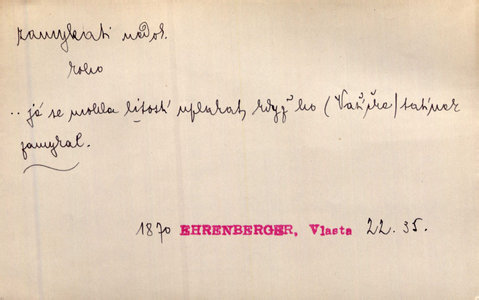 zamykati nedok.
koho
.. já se mohla lítostí uplakat, když ho (Vašíka) tatínek
zamykal.
1870 EHRENBERGER, Vlasta 22.35.